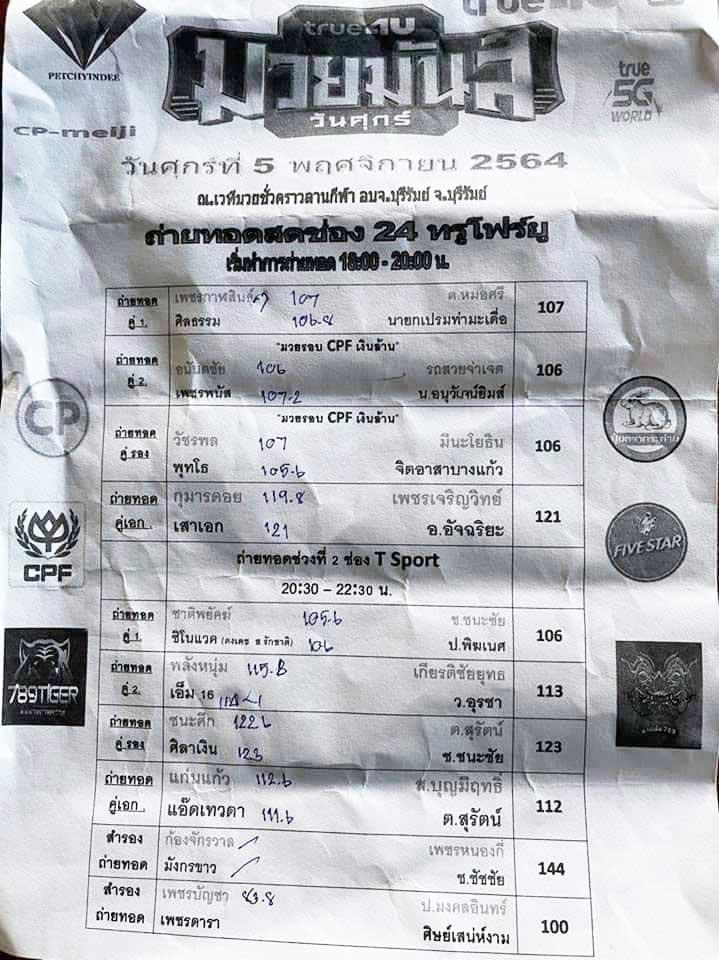 true4U
PETCHYINDEE
มวยมันส์
วันศุกร์
true
5G
WORLD
CP-meiji
วันศุกร์ที่ 5 พฤศจิกายน 2564
ณ.เวทีมวยชั่วคราวลานกีฬา อบจ.บุรีรัมย์ จ.บุรีรัมย์
ถ่ายทอดสดช่อง 24 ทรูโฟร์ยู
เริ่มทำการถ่ายทอด 18:00 - 20:00 น.
ถ่ายทอด เพชรกาฬสินธุ์ 107 ต.หมอศรี 107
คู่ 1. ศิลธรรม 106-8 นายกเปรมท่ามะเดื่อ
"มวยรอบ CPF เงินล้าน"
ถ่ายทอด อนันตชัย 106 รถสวยจ่าเจต 106
คู่ 2. เพชรพนัส 107-2 น.อนุวัฒน์ยิมส์
"มวยรอบ CPF เงินล้าน"
ถ่ายทอด วัชรพล 107 มีนะโยธิน 106
คู่ รอง พุทโธ 105.6 จิตอาสาบางแก้ว
ถ่ายทอด กุมารดอย 119.8 เพชรเจริญวิทย์ 121
คู่เอก . เสาเอก 121 อ.อัจฉริยะ
ถ่ายทอดช่วงที่ 2 ช่อง T Sport
20:30 – 22:30 น.
ถ่ายทอด ชาติพยัคฆ์ 105.6 ช.ชนะชัย 106
คู่ 1. ชิโนแวค (คงเดช ส.รักชาติ) 106 ป.พิฆเนศ
ถ่ายทอด พลังหนุ่ม 115.8 เกียรติชัยยุทธ 113
คู่ 2. เอ็ม 16 ว.อุรชา
ถ่ายทอด ชนะศึก 122.6 ต.สุรัตน์ 123
คู่ รอง ศิลาเงิน 123 ช.ชนะชัย
ถ่ายทอด แก่นแก้ว 112.6 ส.บุญมีฤทธิ์ 112
คู่เอก . แอ๊ดเทวดา 111.6 ต.สุรัตน์
สำรอง ก้องจักรวาล เพชรหนองกี่ 144
ถ่ายทอด มังกรขาว ช.ชัชชัย
สำรอง เพชรบัญชา ป.มงคลอินทร์ 100
ถ่ายทอด เพชรดารา ศิษย์เสน่ห์งาม
CP
CPF
789TIGER
ปุ๋ยตรากระต่าย
FIVE STAR